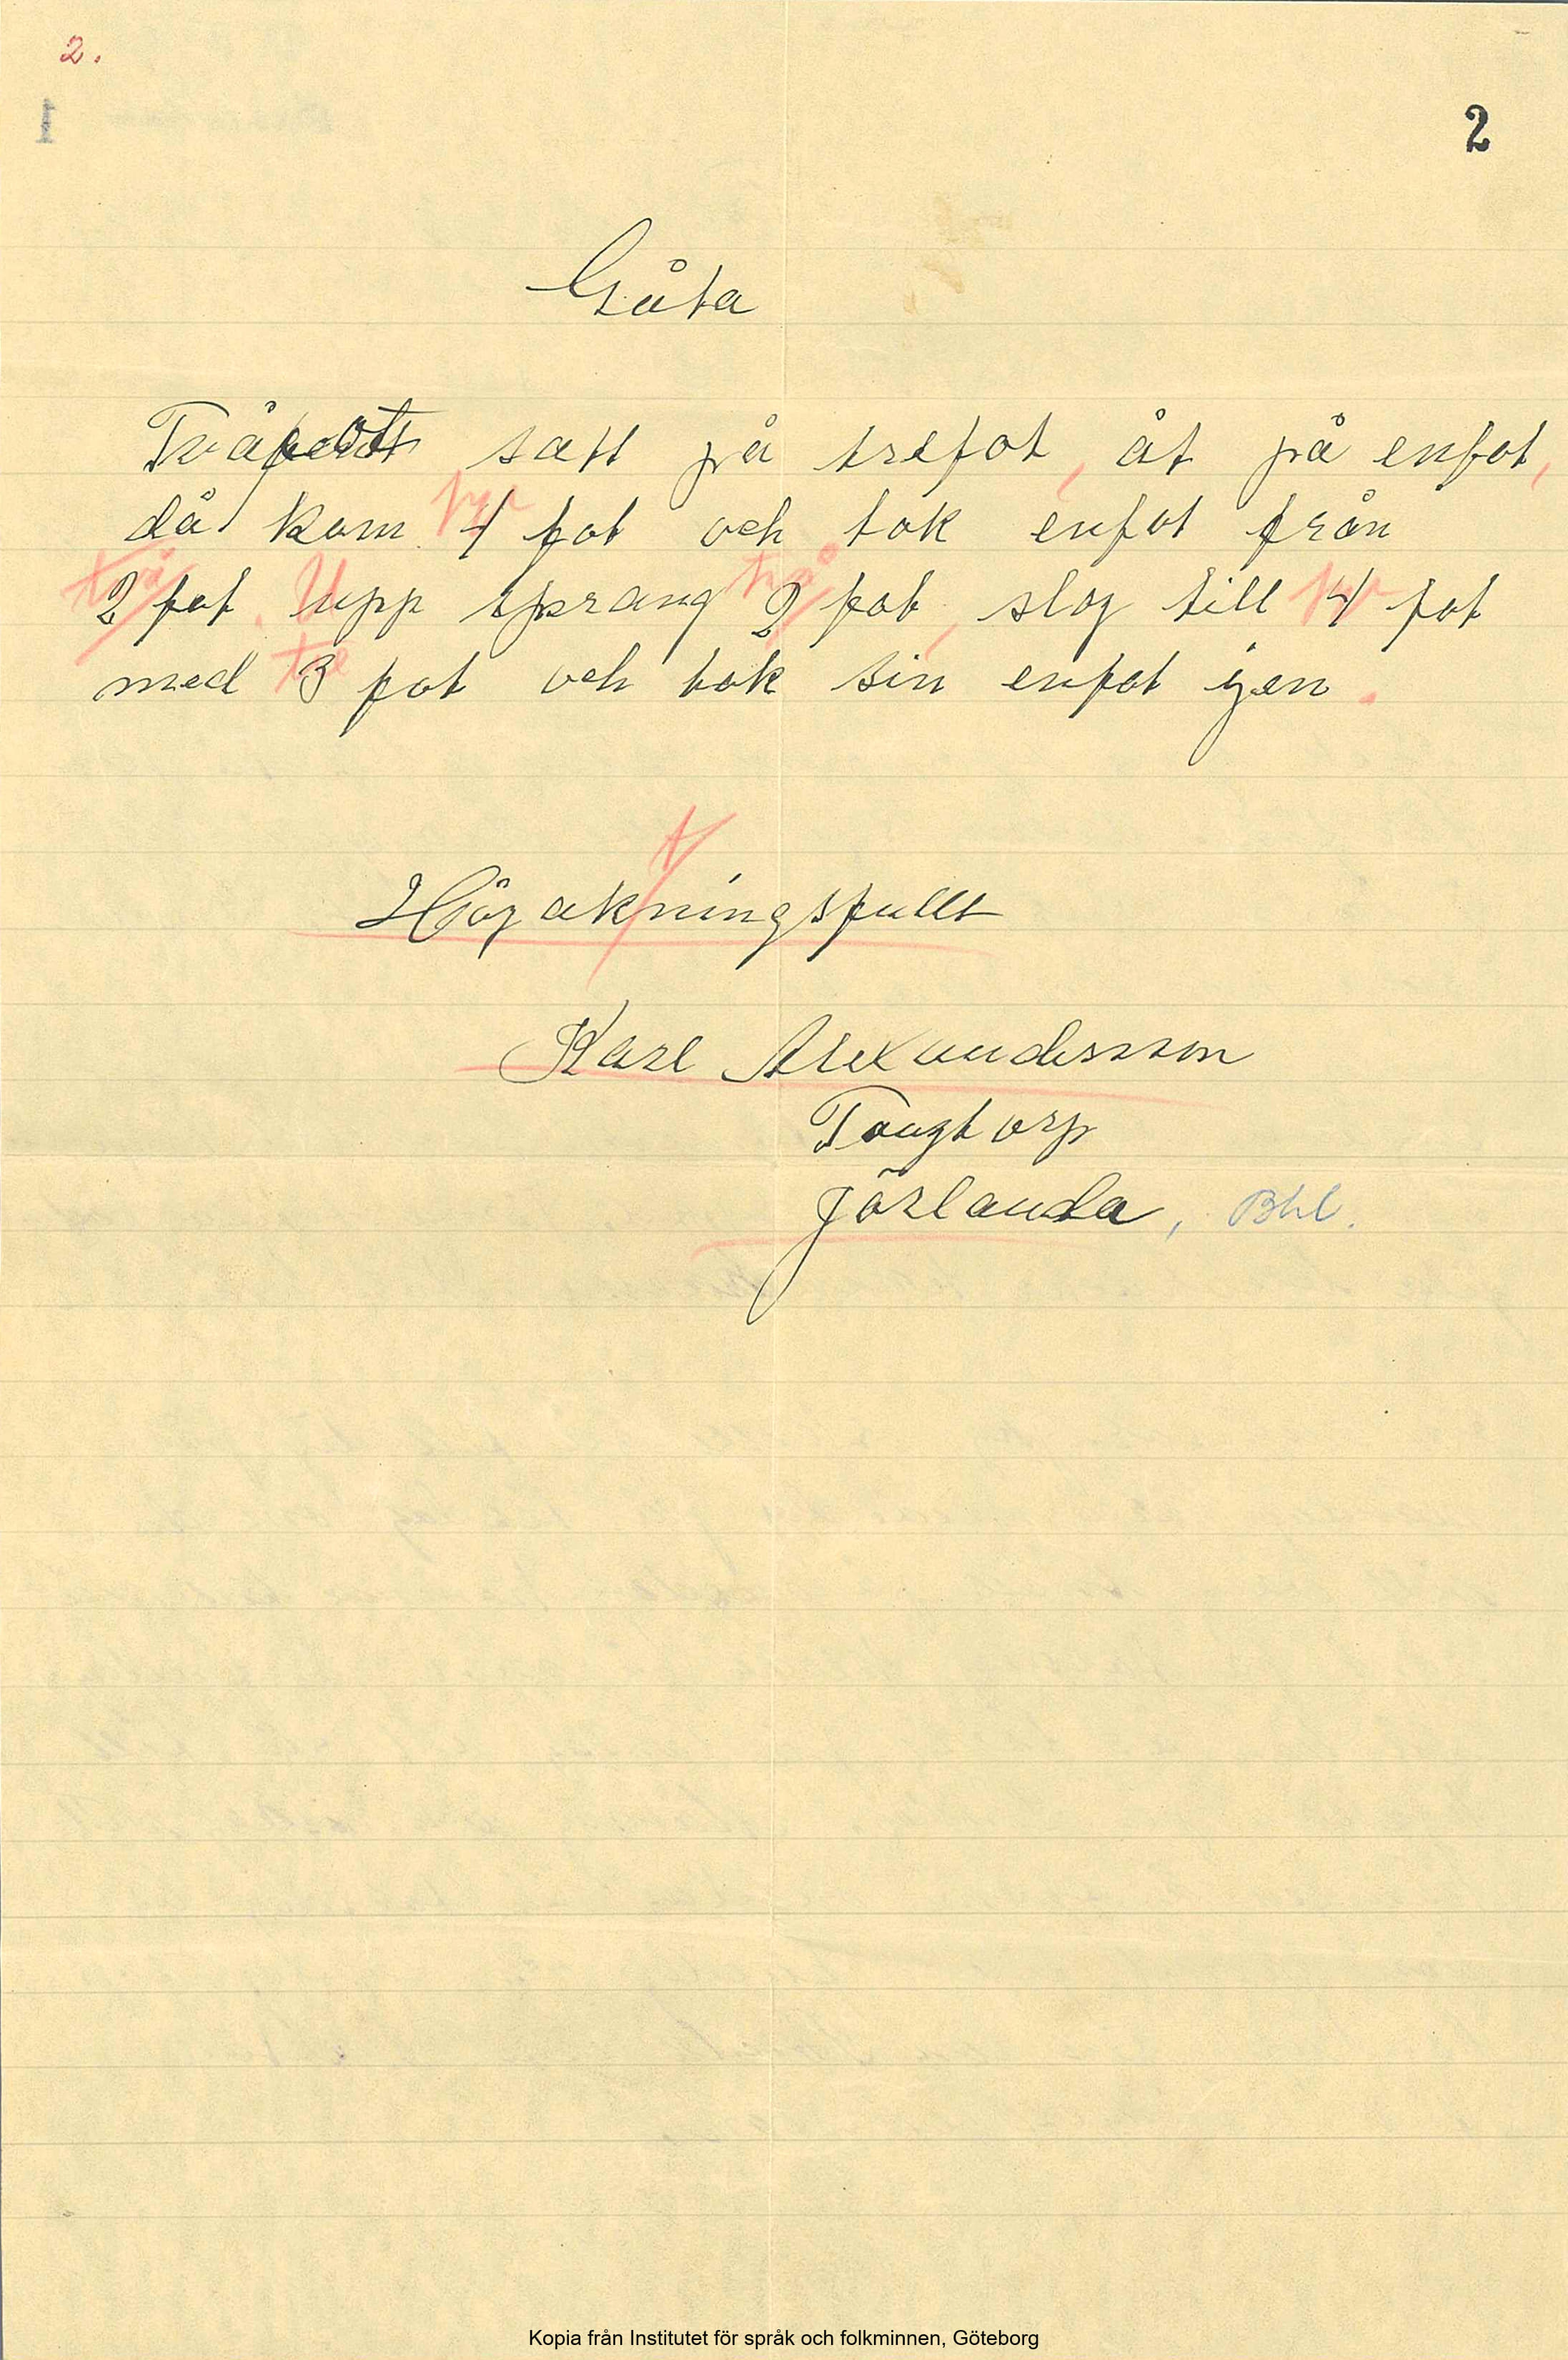 2.
2
Gåta
Tvåfot satt på trefot, åt på enfot,
då kom fyr 4 fot och tok enfot från
två 2 fot. Upp sprang två 2 fot, slog till fyr 4 fot
med tre 3 fot och tok sin enfot igen.
t
Högakningsfullt
Karl Alexandersson
Tougtorp
Jörlanda, Bhl.
Kopia från Institutet för språk och folkminnen, Göteborg